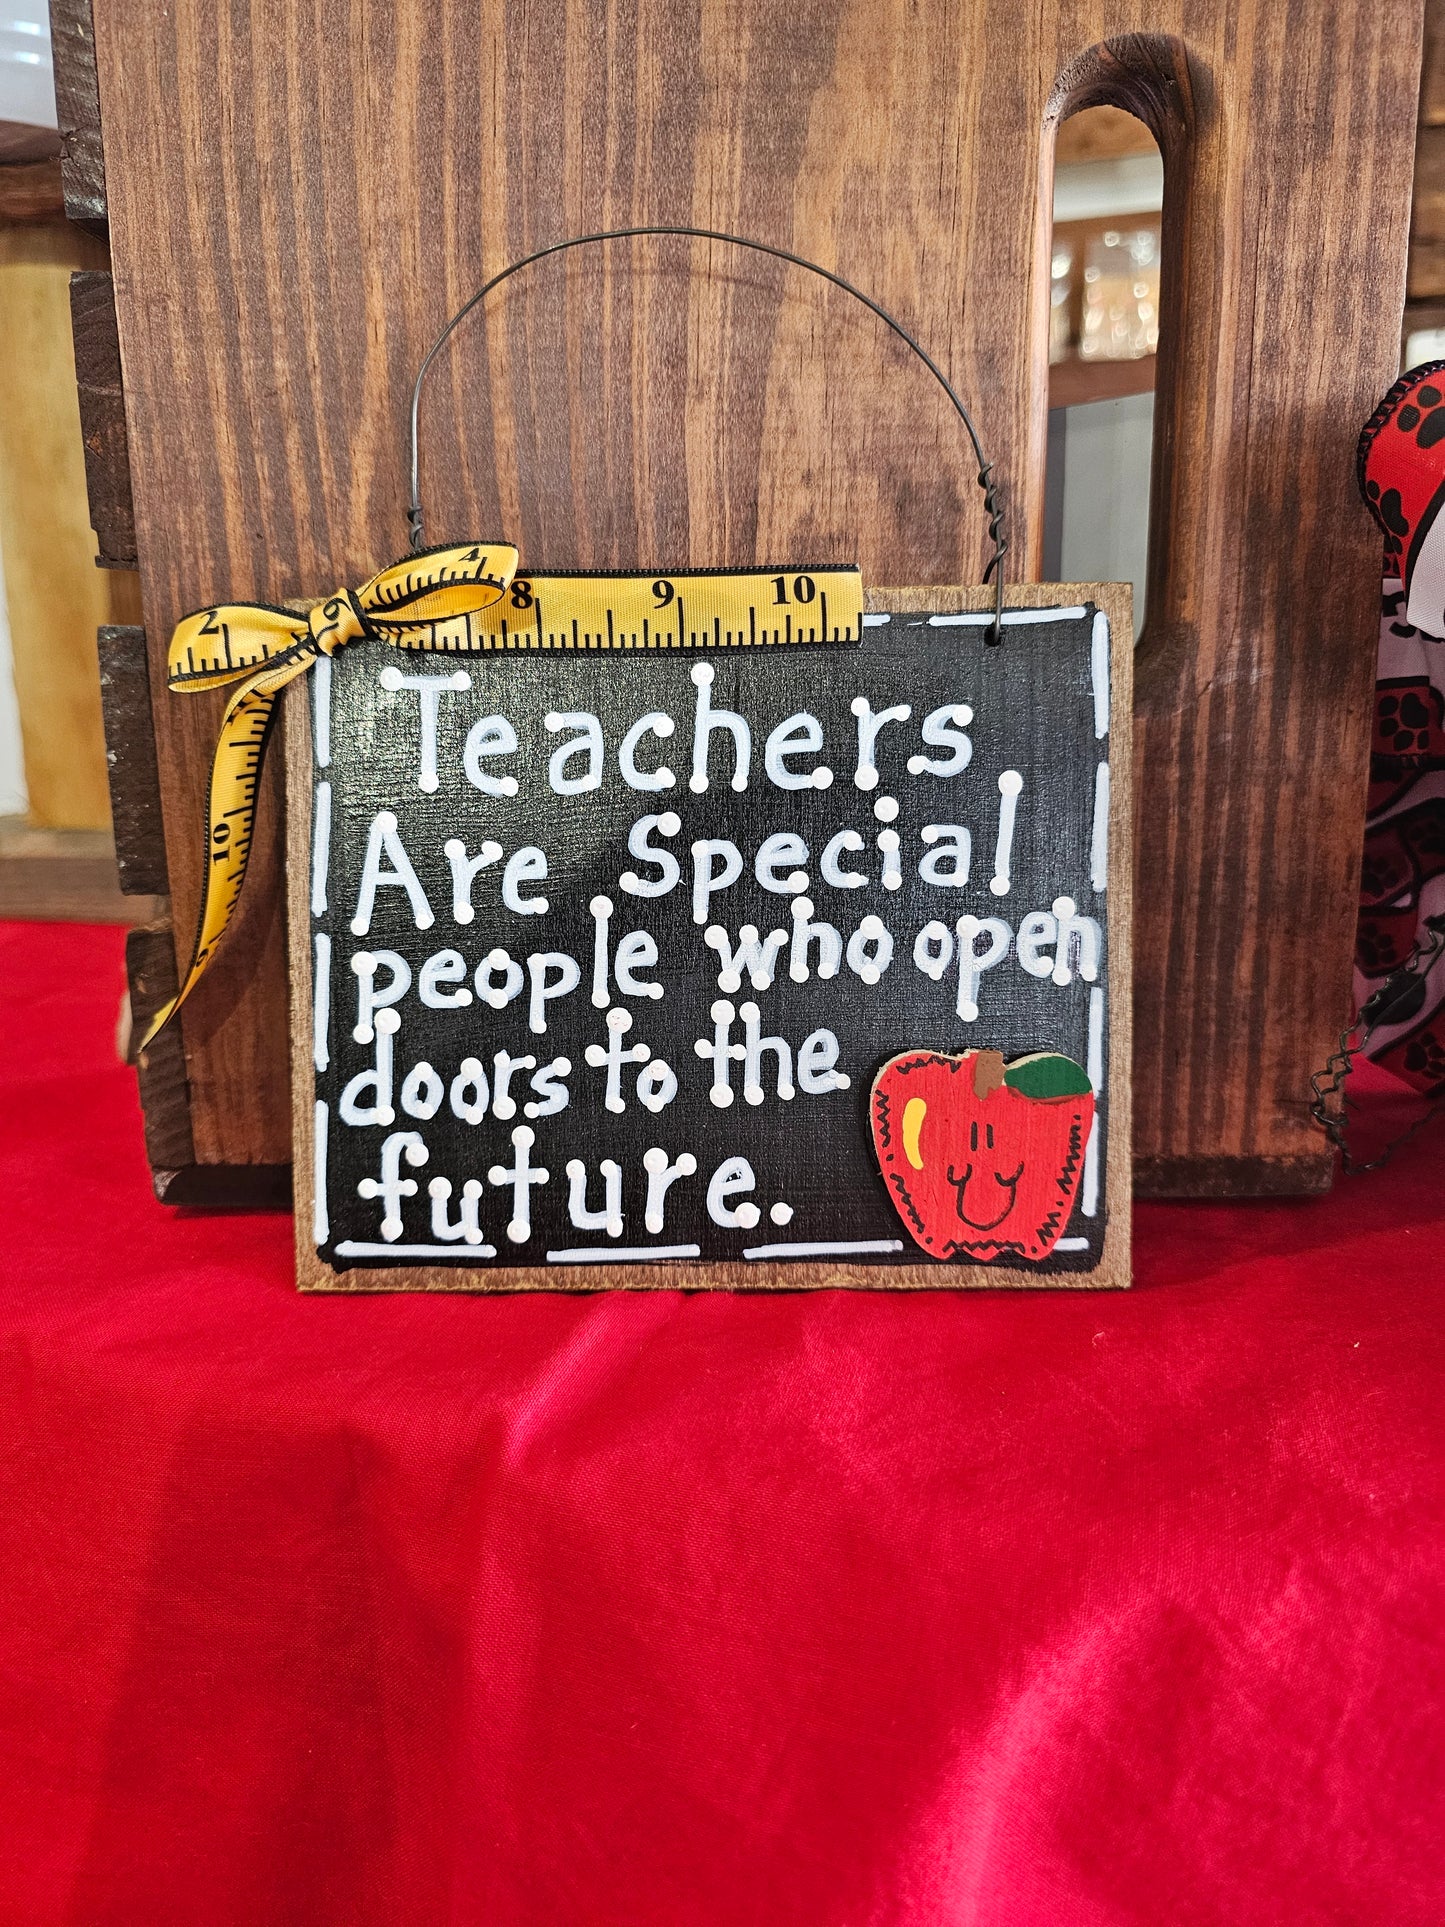 2 6 4 8 9 10
10
9
Teachers
Are Special
people who open
doors to the
future.